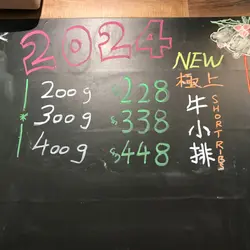 2024
NEW
200g $228
*300g $338
400g $448
極上
牛小排
SHORTRIBS